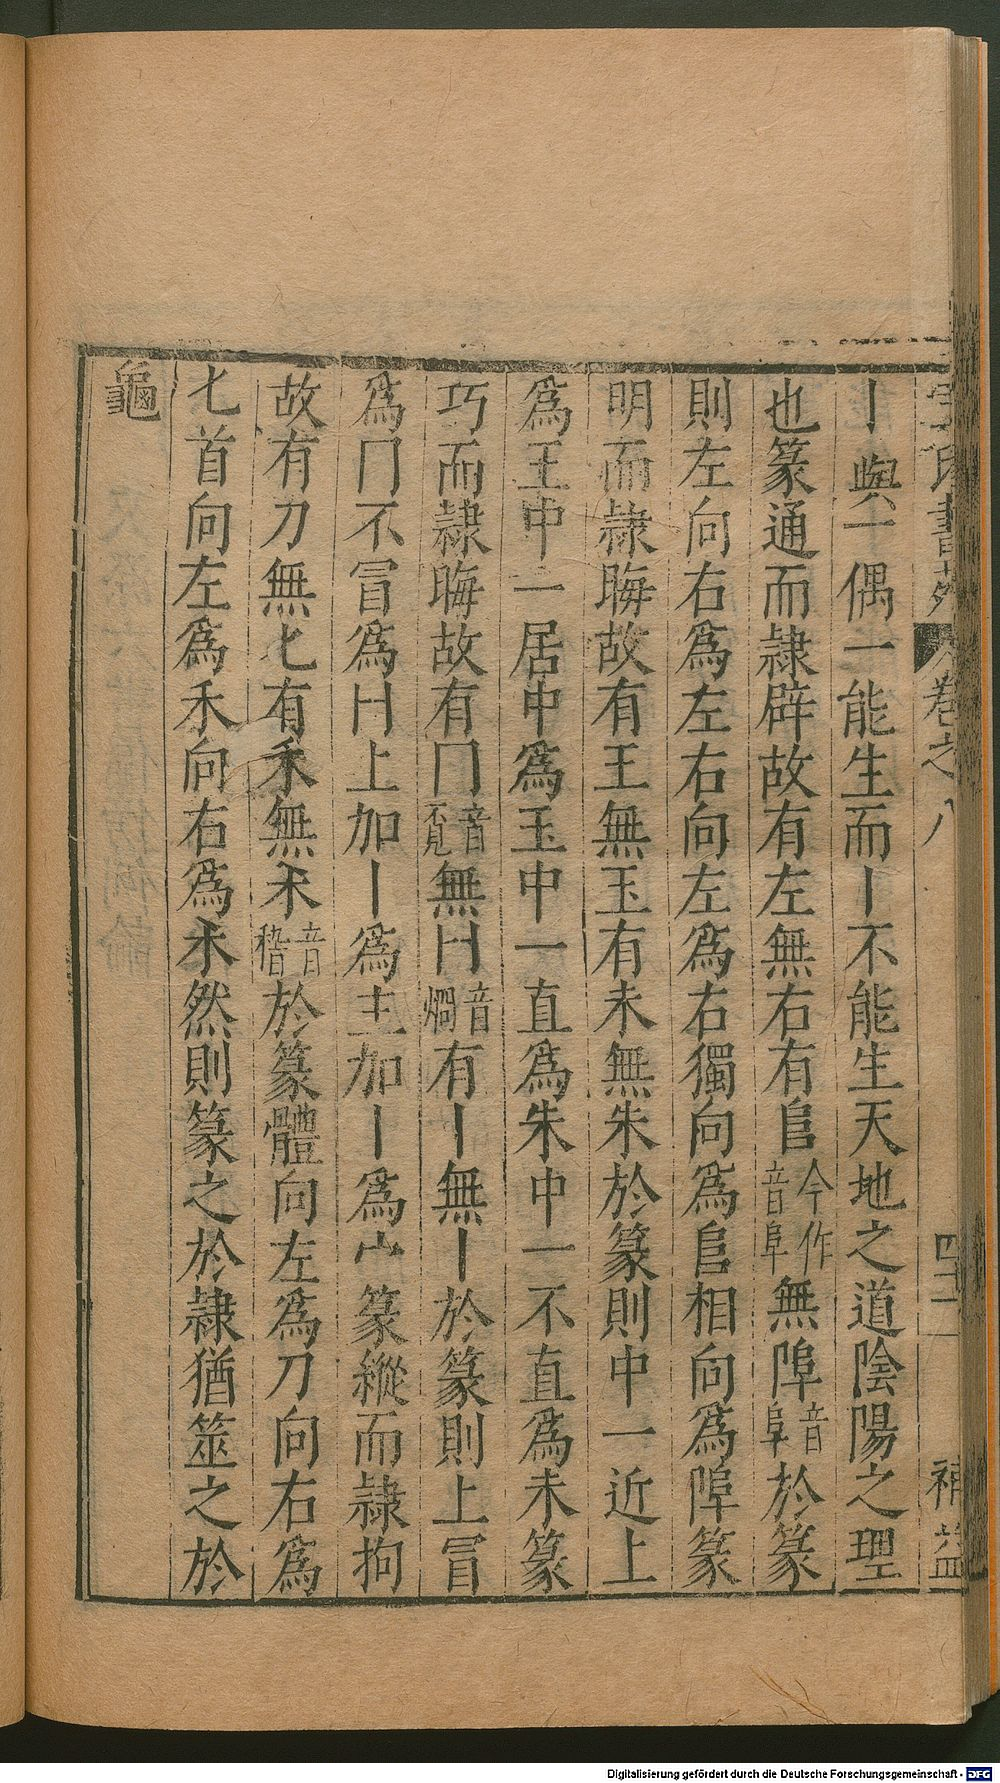 丨與一偶一能生而丨不能生天地之道陰陽之理
也篆通而隷辟故有左無右有𠂤今作音阜無𨸏音阜於篆
則左向右爲左右向左爲右獨向爲𠂤相向爲𨸏篆
明而隷晦故有王無玉有未無朱於篆則中一近上
爲王中一居中爲玉中一直爲朱中一不直爲未篆
巧而隷晦故有冂音覓無音燜有丨無丨於篆則上冒
爲冂不冒爲上加丨爲加丨爲篆縱而隷拘
故有刀無匕有禾無𥝌音稽於篆體向左爲刀向右爲
匕首向左爲禾向右爲𥝌然則篆之於隷猶筮之於
龜
卷之八
四十一
補益
Digitalisierung gefördert durch die Deutsche Forschungsgemeinschaft - DFG